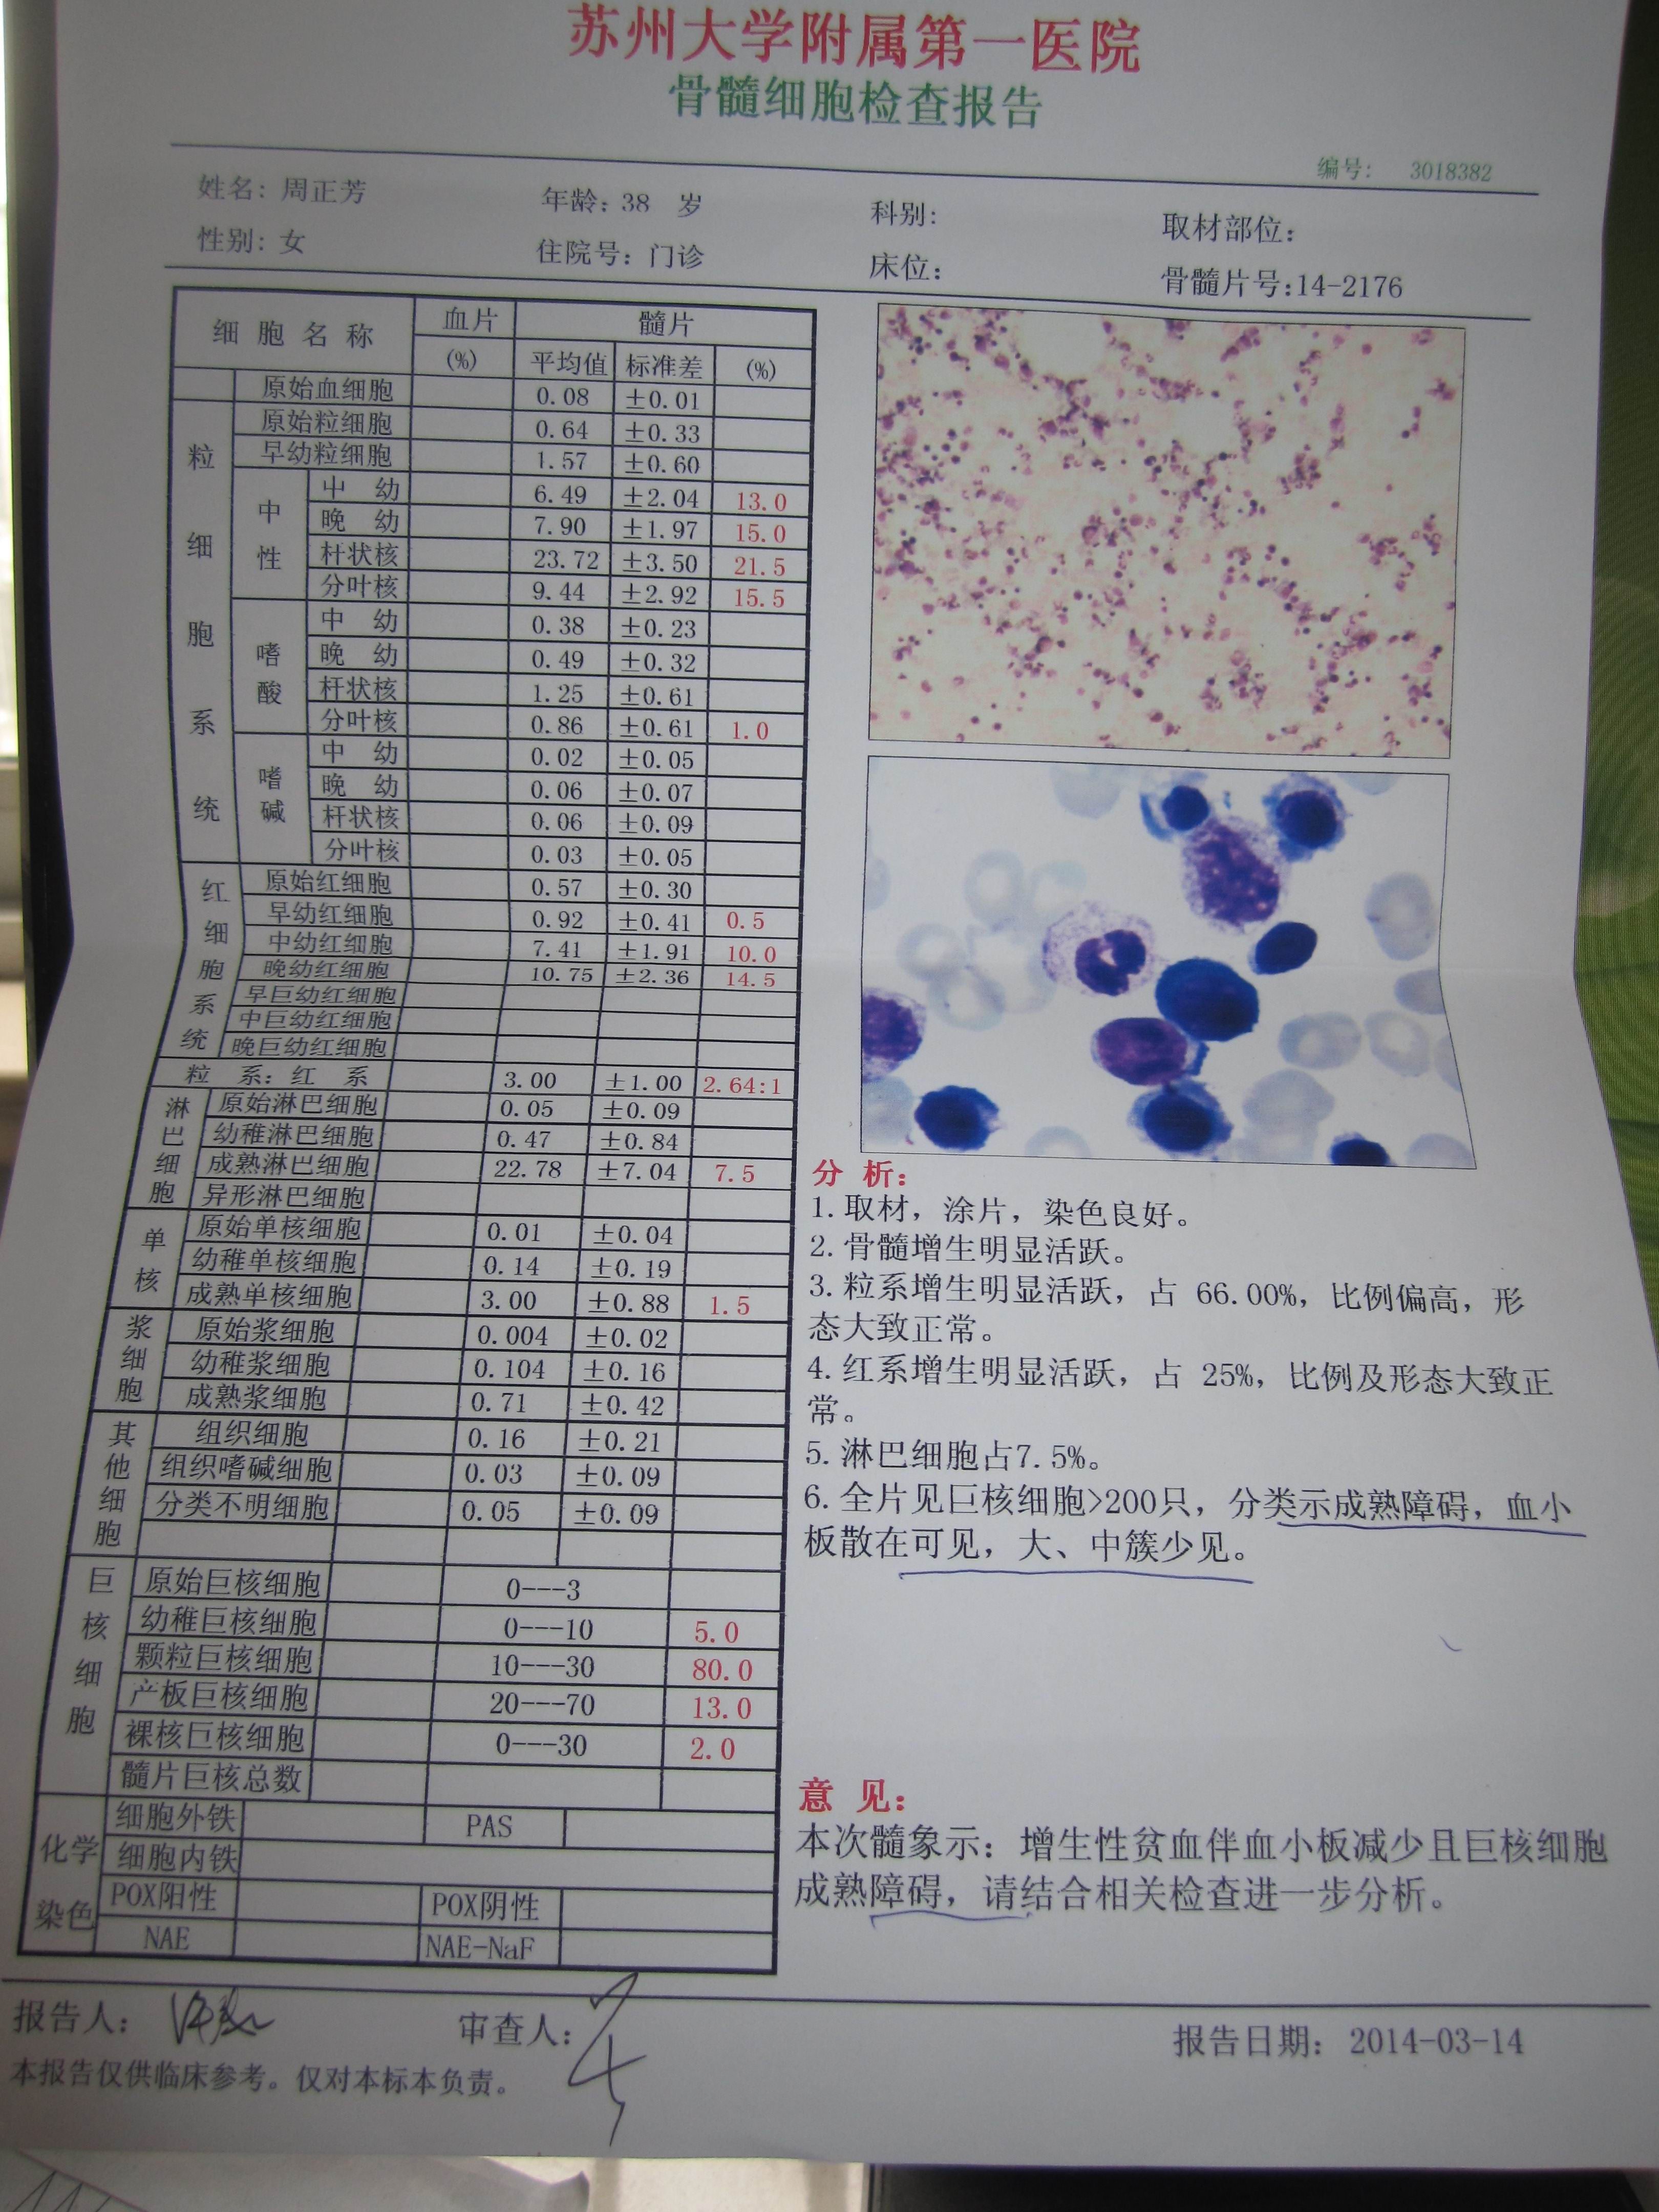 苏州大学附属第一医院
骨髓细胞检查报告
编号: 3018382
姓名: 周正芳 年龄: 38 岁 科别: 取材部位:
性别: 女 住院号: 门诊 床位: 骨髓片号:14-2176
细 胞 名 称 血片 髓片
(%) 平均值 标准差 (%)
原始血细胞 0.08 ±0.01
粒细胞系统
原始粒细胞 0.64 ±0.33
早幼粒细胞 1.57 ±0.60
中性
中 幼 6.49 ±2.04 13.0
晚 幼 7.90 ±1.97 15.0
杆状核 23.72 ±3.50 21.5
分叶核 9.44 ±2.92 15.5
嗜酸
中 幼 0.38 ±0.23
晚 幼 0.49 ±0.32
杆状核 1.25 ±0.61
分叶核 0.86 ±0.61 1.0
嗜碱
中 幼 0.02 ±0.05
晚 幼 0.06 ±0.07
杆状核 0.06 ±0.09
分叶核 0.03 ±0.05
红细胞系统
原始红细胞 0.57 ±0.30
早幼红细胞 0.92 ±0.41 0.5
中幼红细胞 7.41 ±1.91 10.0
晚幼红细胞 10.75 ±2.36 14.5
早巨幼红细胞
中巨幼红细胞
晚巨幼红细胞
粒 系: 红 系 3.00 ±1.00 2.64:1
淋巴细胞
原始淋巴细胞 0.05 ±0.09
幼稚淋巴细胞 0.47 ±0.84
成熟淋巴细胞 22.78 ±7.04 7.5
异形淋巴细胞
单核
原始单核细胞 0.01 ±0.04
幼稚单核细胞 0.14 ±0.19
成熟单核细胞 3.00 ±0.88 1.5
浆细胞
原始浆细胞 0.004 ±0.02
幼稚浆细胞 0.104 ±0.16
成熟浆细胞 0.71 ±0.42
其他细胞
组织细胞 0.16 ±0.21
组织嗜碱细胞 0.03 ±0.09
分类不明细胞 0.05 ±0.09
巨核细胞
原始巨核细胞 0---3
幼稚巨核细胞 0---10 5.0
颗粒巨核细胞 10---30 80.0
产板巨核细胞 20---70 13.0
裸核巨核细胞 0---30 2.0
髓片巨核总数
化学染色
细胞外铁 PAS
细胞内铁
POX阳性 POX阴性
NAE NAE-NaF
分 析:
1.取材，涂片，染色良好。
2.骨髓增生明显活跃。
3.粒系增生明显活跃，占 66.00%，比例偏高，形
态大致正常。
4.红系增生明显活跃，占 25%，比例及形态大致正
常。
5.淋巴细胞占7.5%。
6.全片见巨核细胞>200只，分类示成熟障碍，血小
板散在可见，大、中簇少见。
意 见:
本次髓象示: 增生性贫血伴血小板减少且巨核细胞
成熟障碍，请结合相关检查进一步分析。
报告人: 审查人: 报告日期: 2014-03-14
本报告仅供临床参考。仅对本标本负责。